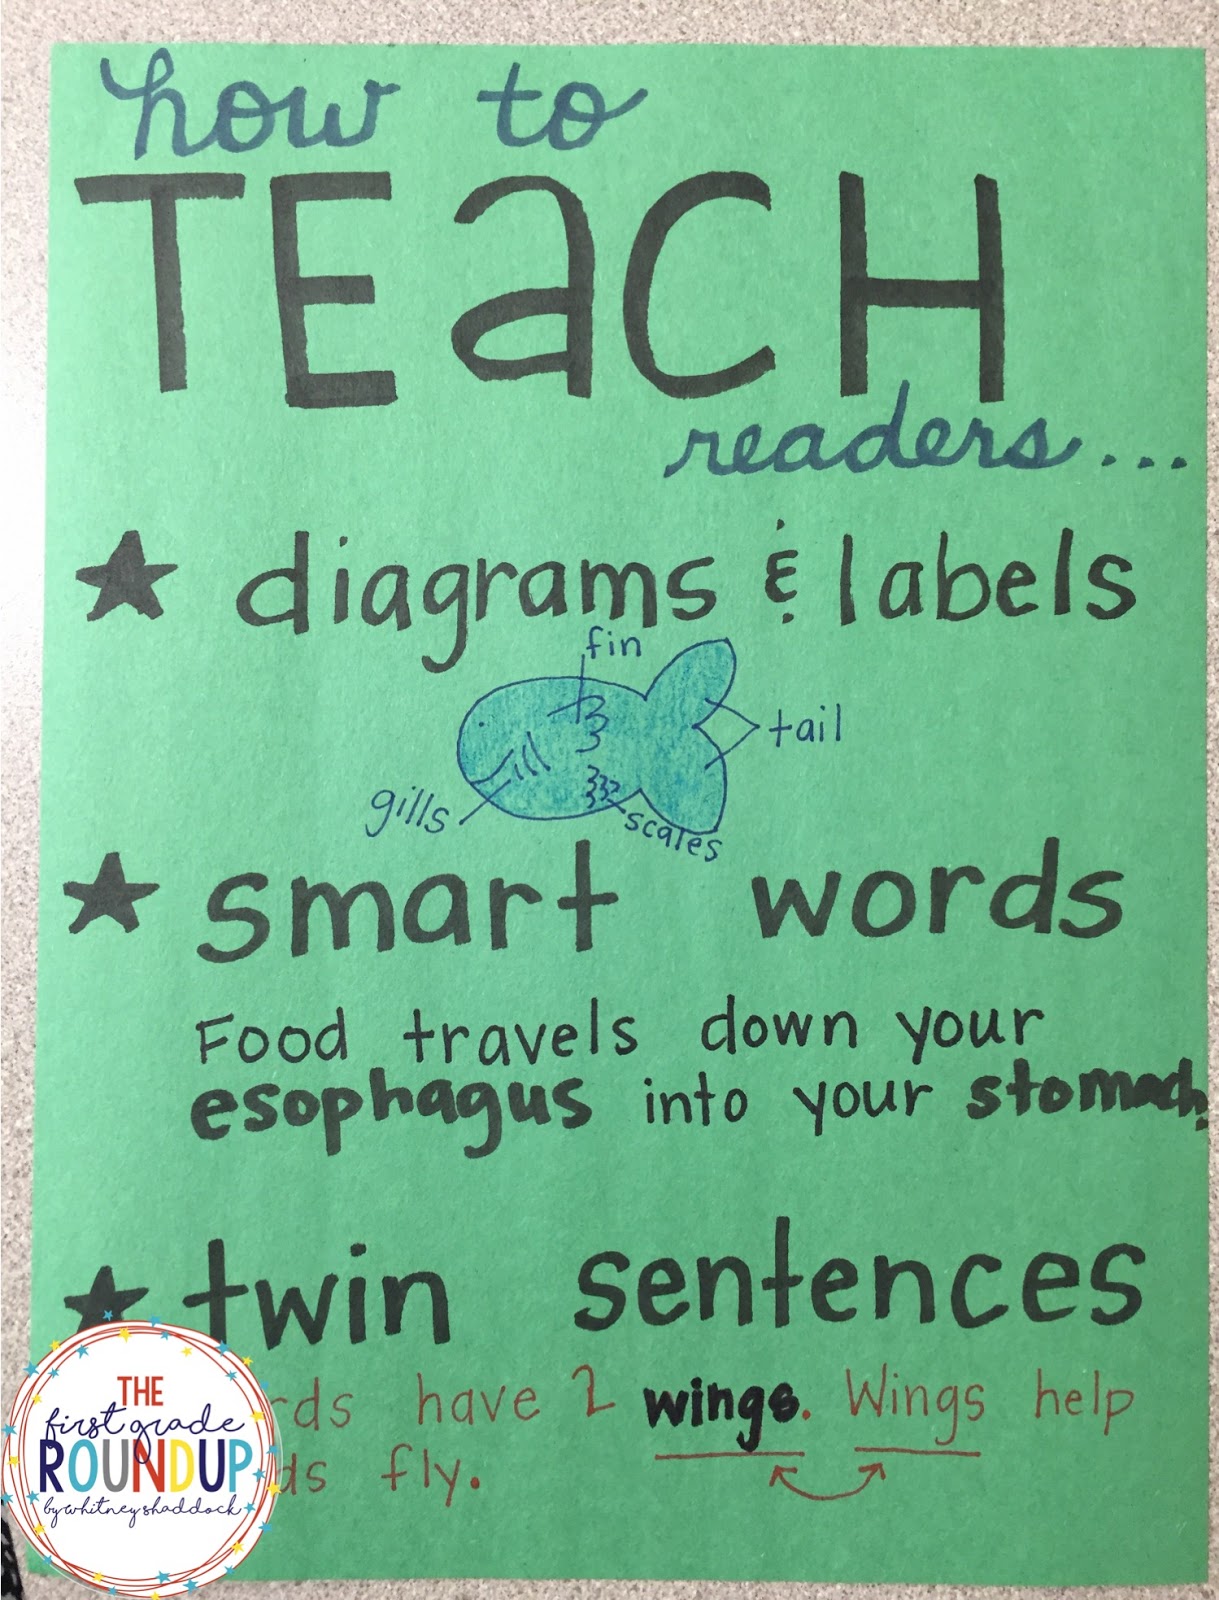 how to
TEaCH
readers...
★ diagrams & labels
fin
tail
gills
scales
★ smart words
Food travels down your
esophagus into your stomach.
★ twin sentences
rds have 2 wings. Wings help
ds fly.
THE
first grade
ROUNDUP
by whitney shaddock